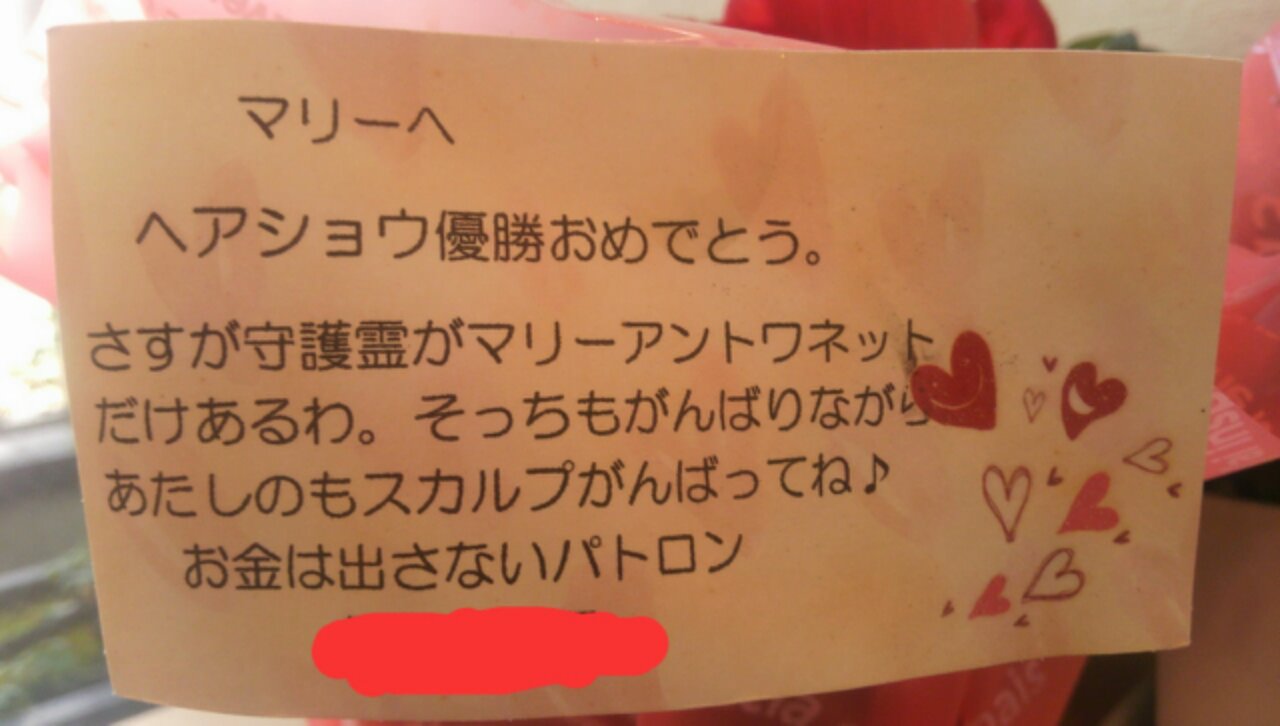 マリーへ
ヘアショウ優勝おめでとう。
さすが守護霊がマリーアントワネット
だけあるわ。そっちもがんばりながら
あたしのもスカルプがんばってね♪
お金は出さないパトロン